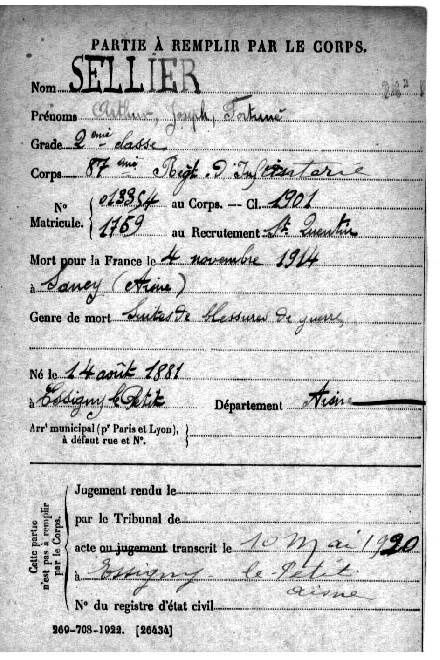 PARTIE À REMPLIR PAR LE CORPS.
Nom SELLIER
Prénoms Arthur, Joseph, Fortuné
Grade 2ème classe
Corps 87ème Régt. d'Infanterie
N° Matricule. 013354 au Corps. — Cl. 1901
1759 au Recrutement St. Quentin
Mort pour la France le 4 novembre 1914
à Sancy (Aisne)
Genre de mort Suites de blessures de guerre
Né le 14 août 1881
à Essigny le Petit Département Aisne
Arrt municipal (pr Paris et Lyon), à défaut rue et N°.
Cette partie n'est pas à remplir par le Corps.
Jugement rendu le
par le Tribunal de
acte ou jugement transcrit le 10 Mai 1920
à Essigny le Petit
aisne
N° du registre d'état civil
269-708-1922. [26434]